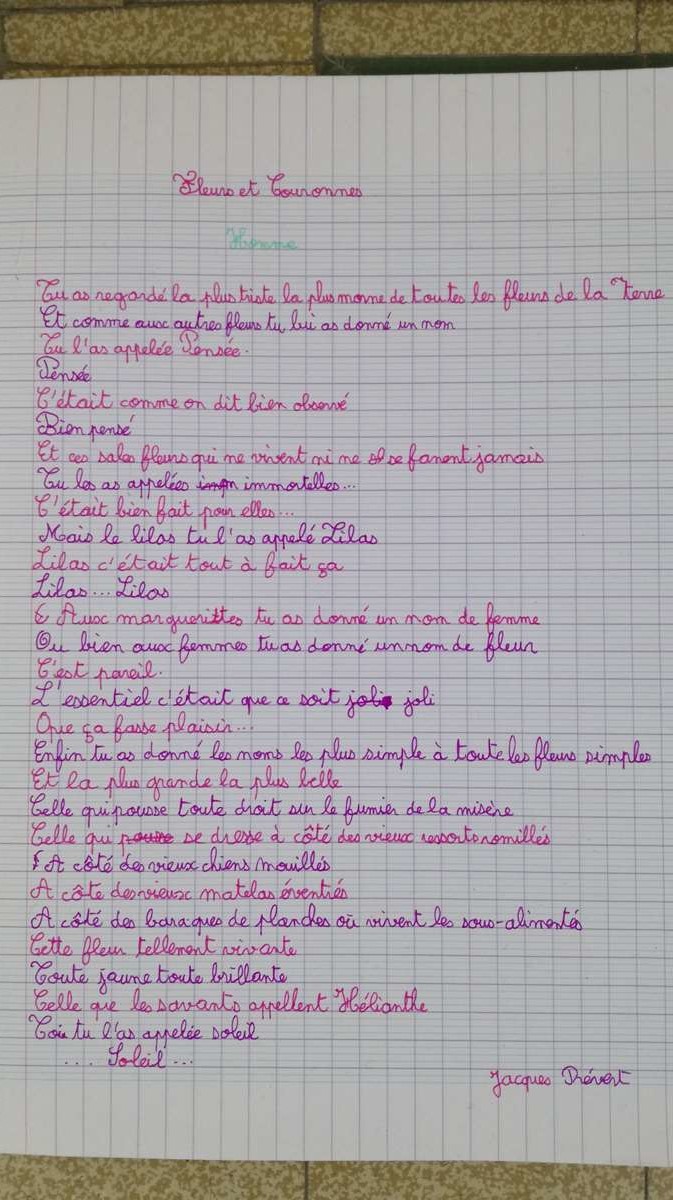 Fleurs et Couronnes
Homme
Tu as regardé la plus triste la plus morne de toutes les fleurs de la Terre
Et comme aux autres fleurs tu lui as donné un nom
Tu l'as appelée Pensée.
Pensée
C'était comme on dit bien observé
Bien pensé
Et ces sales fleurs qui ne vivent ni ne se fanent jamais
Tu les as appelées immortelles...
C'était bien fait pour elles...
Mais le lilas tu l'as appelé Lilas
Lilas c'était tout à fait ça
Lilas... Lilas
Aux marguerittes tu as donné un nom de femme
Ou bien aux femmes tu as donné un nom de fleur
C'est pareil.
L'essentiel c'était que ce soit joli
Que ça fasse plaisir...
Enfin tu as donné les noms les plus simple à toute les fleurs simples
Et la plus grande la plus belle
Celle qui pousse toute droit sur le fumier de la misère
Celle qui se dresse à côté des vieux ressorts romillés
A côté des vieux chiens mouillés
A côte des vieux matelas éventiés
A côté des baraques de planches où vivent les sous-alimentés
Cette fleur tellement vivante
Toute jaune toute brillante
Celle que les savants appellent Hélianthe
Toi tu l'as appelée soleil
... Soleil...
Jacques Prévert